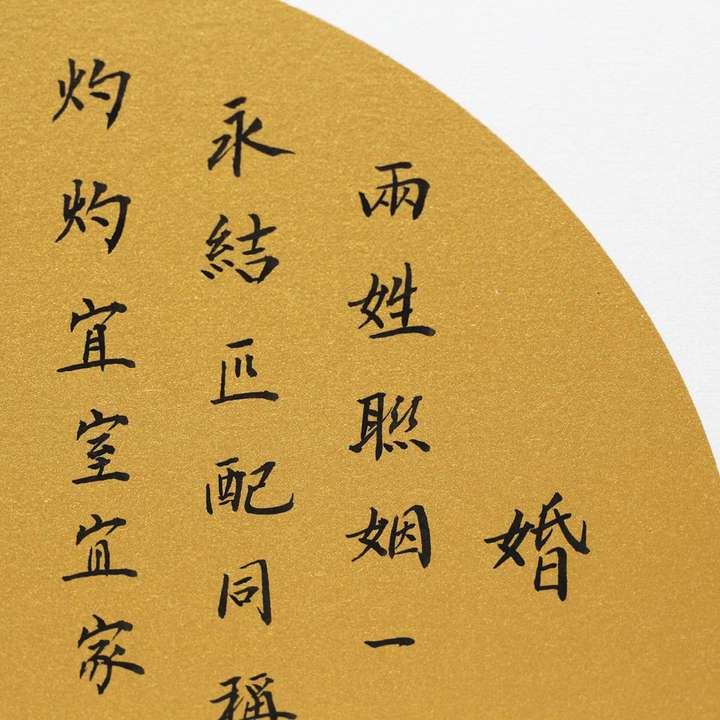 婚
兩姓聯姻一
永結匹配同稱
灼灼宜室宜家